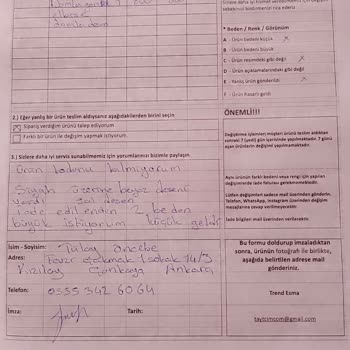 sebebinizi bildirmenizi rica ederiz
* Beden / Renk / Görünüm
A - Ürün bedeni küçük X
B - Ürün bedeni büyük
C - Ürün resimdeki gibi değil X
D - Ürün açıklamalarındaki gibi değil
E - Yanlış ürün gönderildi X
F - Ürün hasarlı geldi
2.) Eğer yanlış bir ürün teslim aldıysanız aşağıdakilerden birini seçin
X Sipariş verdiğim ürünü talep ediyorum
Farklı bir ürün ile değişim yapmak istiyorum.
ÖNEMLİ!!!
Değiştirme işlemleri müşteri ürünü teslim aldıktan
sonraki 7 (yedi) gün içerisinde yapılmaktadır. 7 günü
aşan ürünlerin değişimi yapılmamaktadır.
3.) Sizlere daha iyi servis sunabilmemiz için yorumlarınızı bizimle paylaşın
Ürün
Siyah üzerine beyaz deseni
iade edilenden 2 beden
büyük istiyorum küçük geldi
Aynı ürünün farklı bedeni veya rengi için yapılan
değişimlerde iade faturası gerekmemektedir.
Lütfen değişimleri sadece mail olarak gönderin.
Telefon, WhatsApp, Instagram üzerinden değişim
mesajlarına cevap verilmeyecektir.
İade bilgileri mail üzerinden verilecektir.
İsim - Soyisim: Tülay
Adres: Fevzi Çakmak 1 sokak 14/3
Kızılay Çankaya Ankara
Telefon: 0555 342 60 64
İmza: Tarih:
Bu formu doldurup imzaladıktan
sonra, ürünün fotoğrafı ile birlikte,
aşağıda belirtilen adrese mail
gönderiniz.
Trend Esma